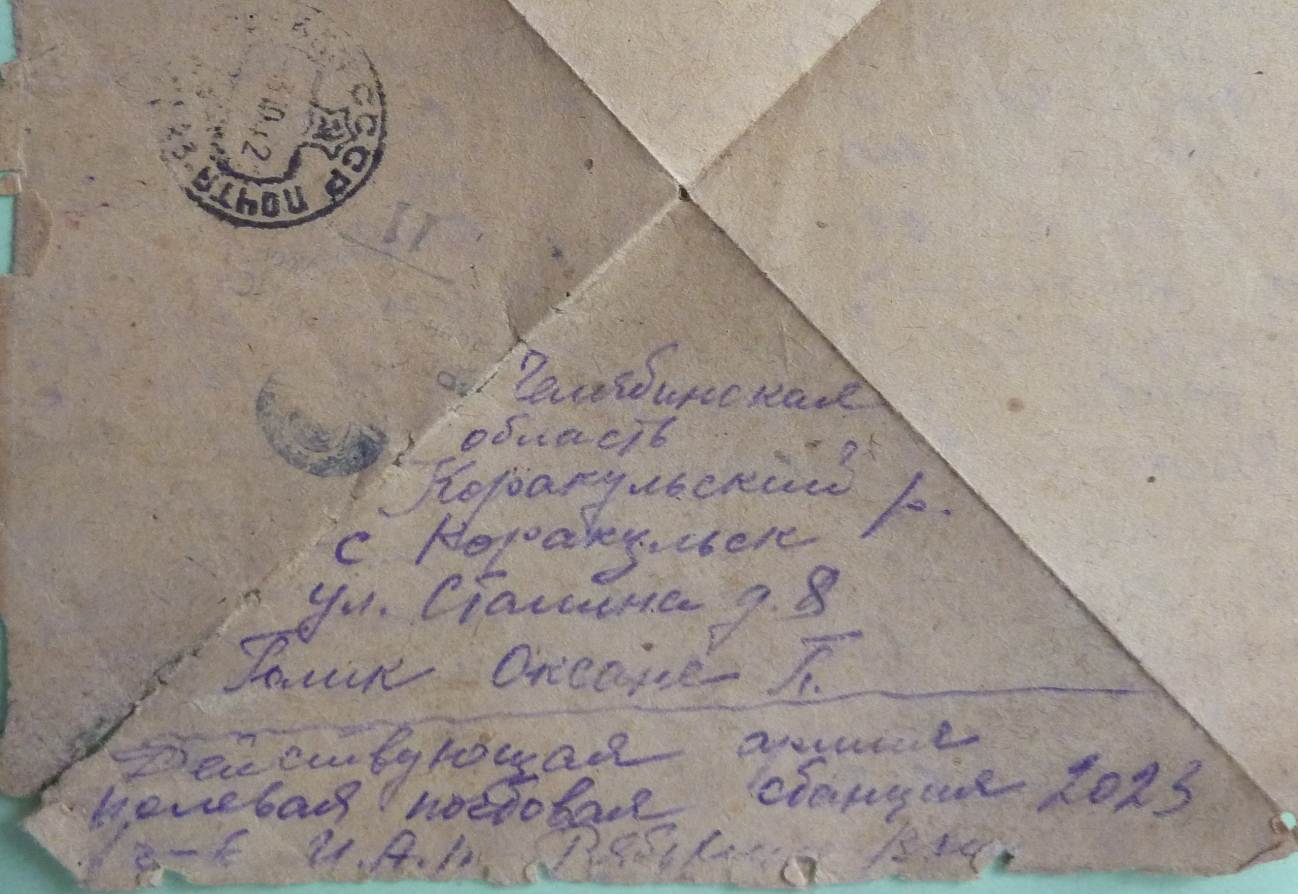 СССР ПОЧТА
11
Челябинская
область
Коракульский р.
с Коракульск
ул. Сталина д. 8
Голик Оксане П.
Действующая армия
полевая почтовая станция 2023
И.А.П.